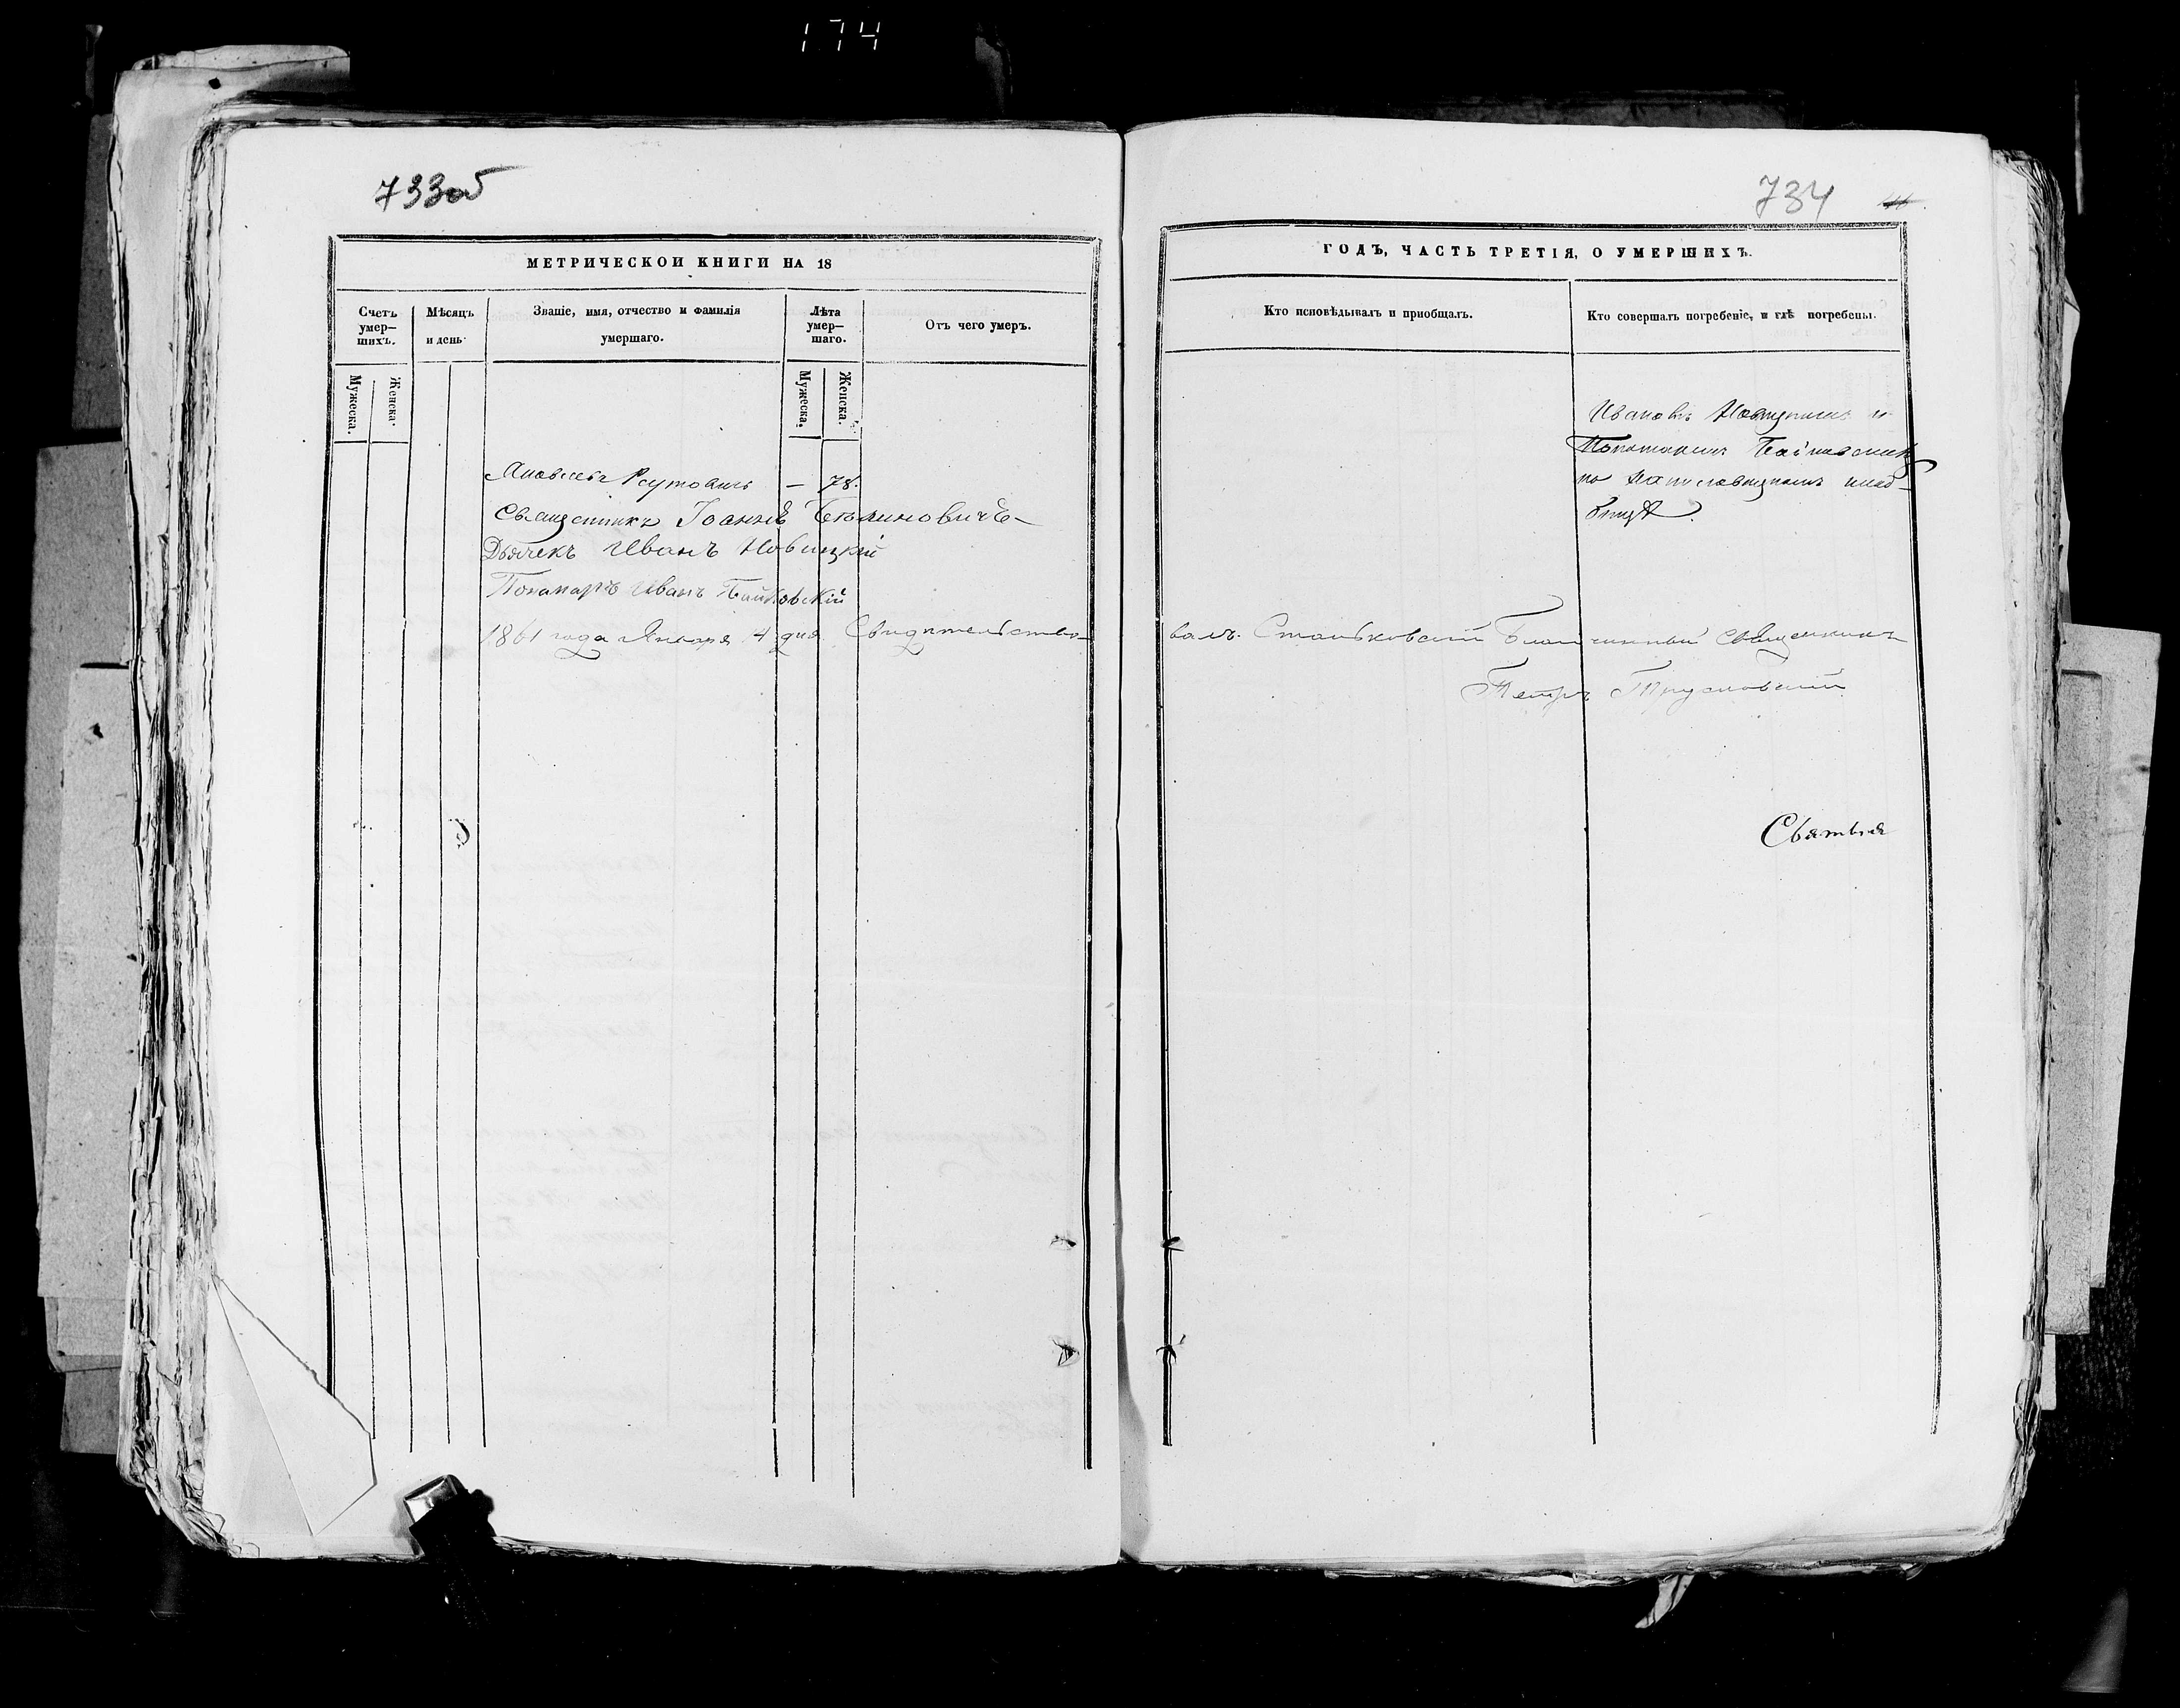 174
733об
МЕТРИЧЕСКОИ КНИГИ НА 18
Счетъ умер–шихъ.
Мѣсяцъ и день
Званіе, имя, отчество и фамилія умершаго.
Лѣта умер–шаго.
Отъ чего умеръ.
Мужеска.
Женска.
Мужеска.
Женска.
— 78.
Священникъ Іоаннъ
Дьячекъ Иванъ Новицкій
Понамарь Иванъ Байковскій
1861 года Января 4 дня Свидѣтельство-
734
ГОДЪ, ЧАСТЬ ТРЕТІЯ, О УМЕРШИХЪ.
Кто исповѣдывалъ и пріобщалъ.
Кто совершалъ погребеніе, и гдѣ погребены.
Ивановъ Новицкимъ и
Понамаремъ
на клад-
бищѣ.
валъ. Станьковскій Благочинный Священникъ
Петръ
Святыя